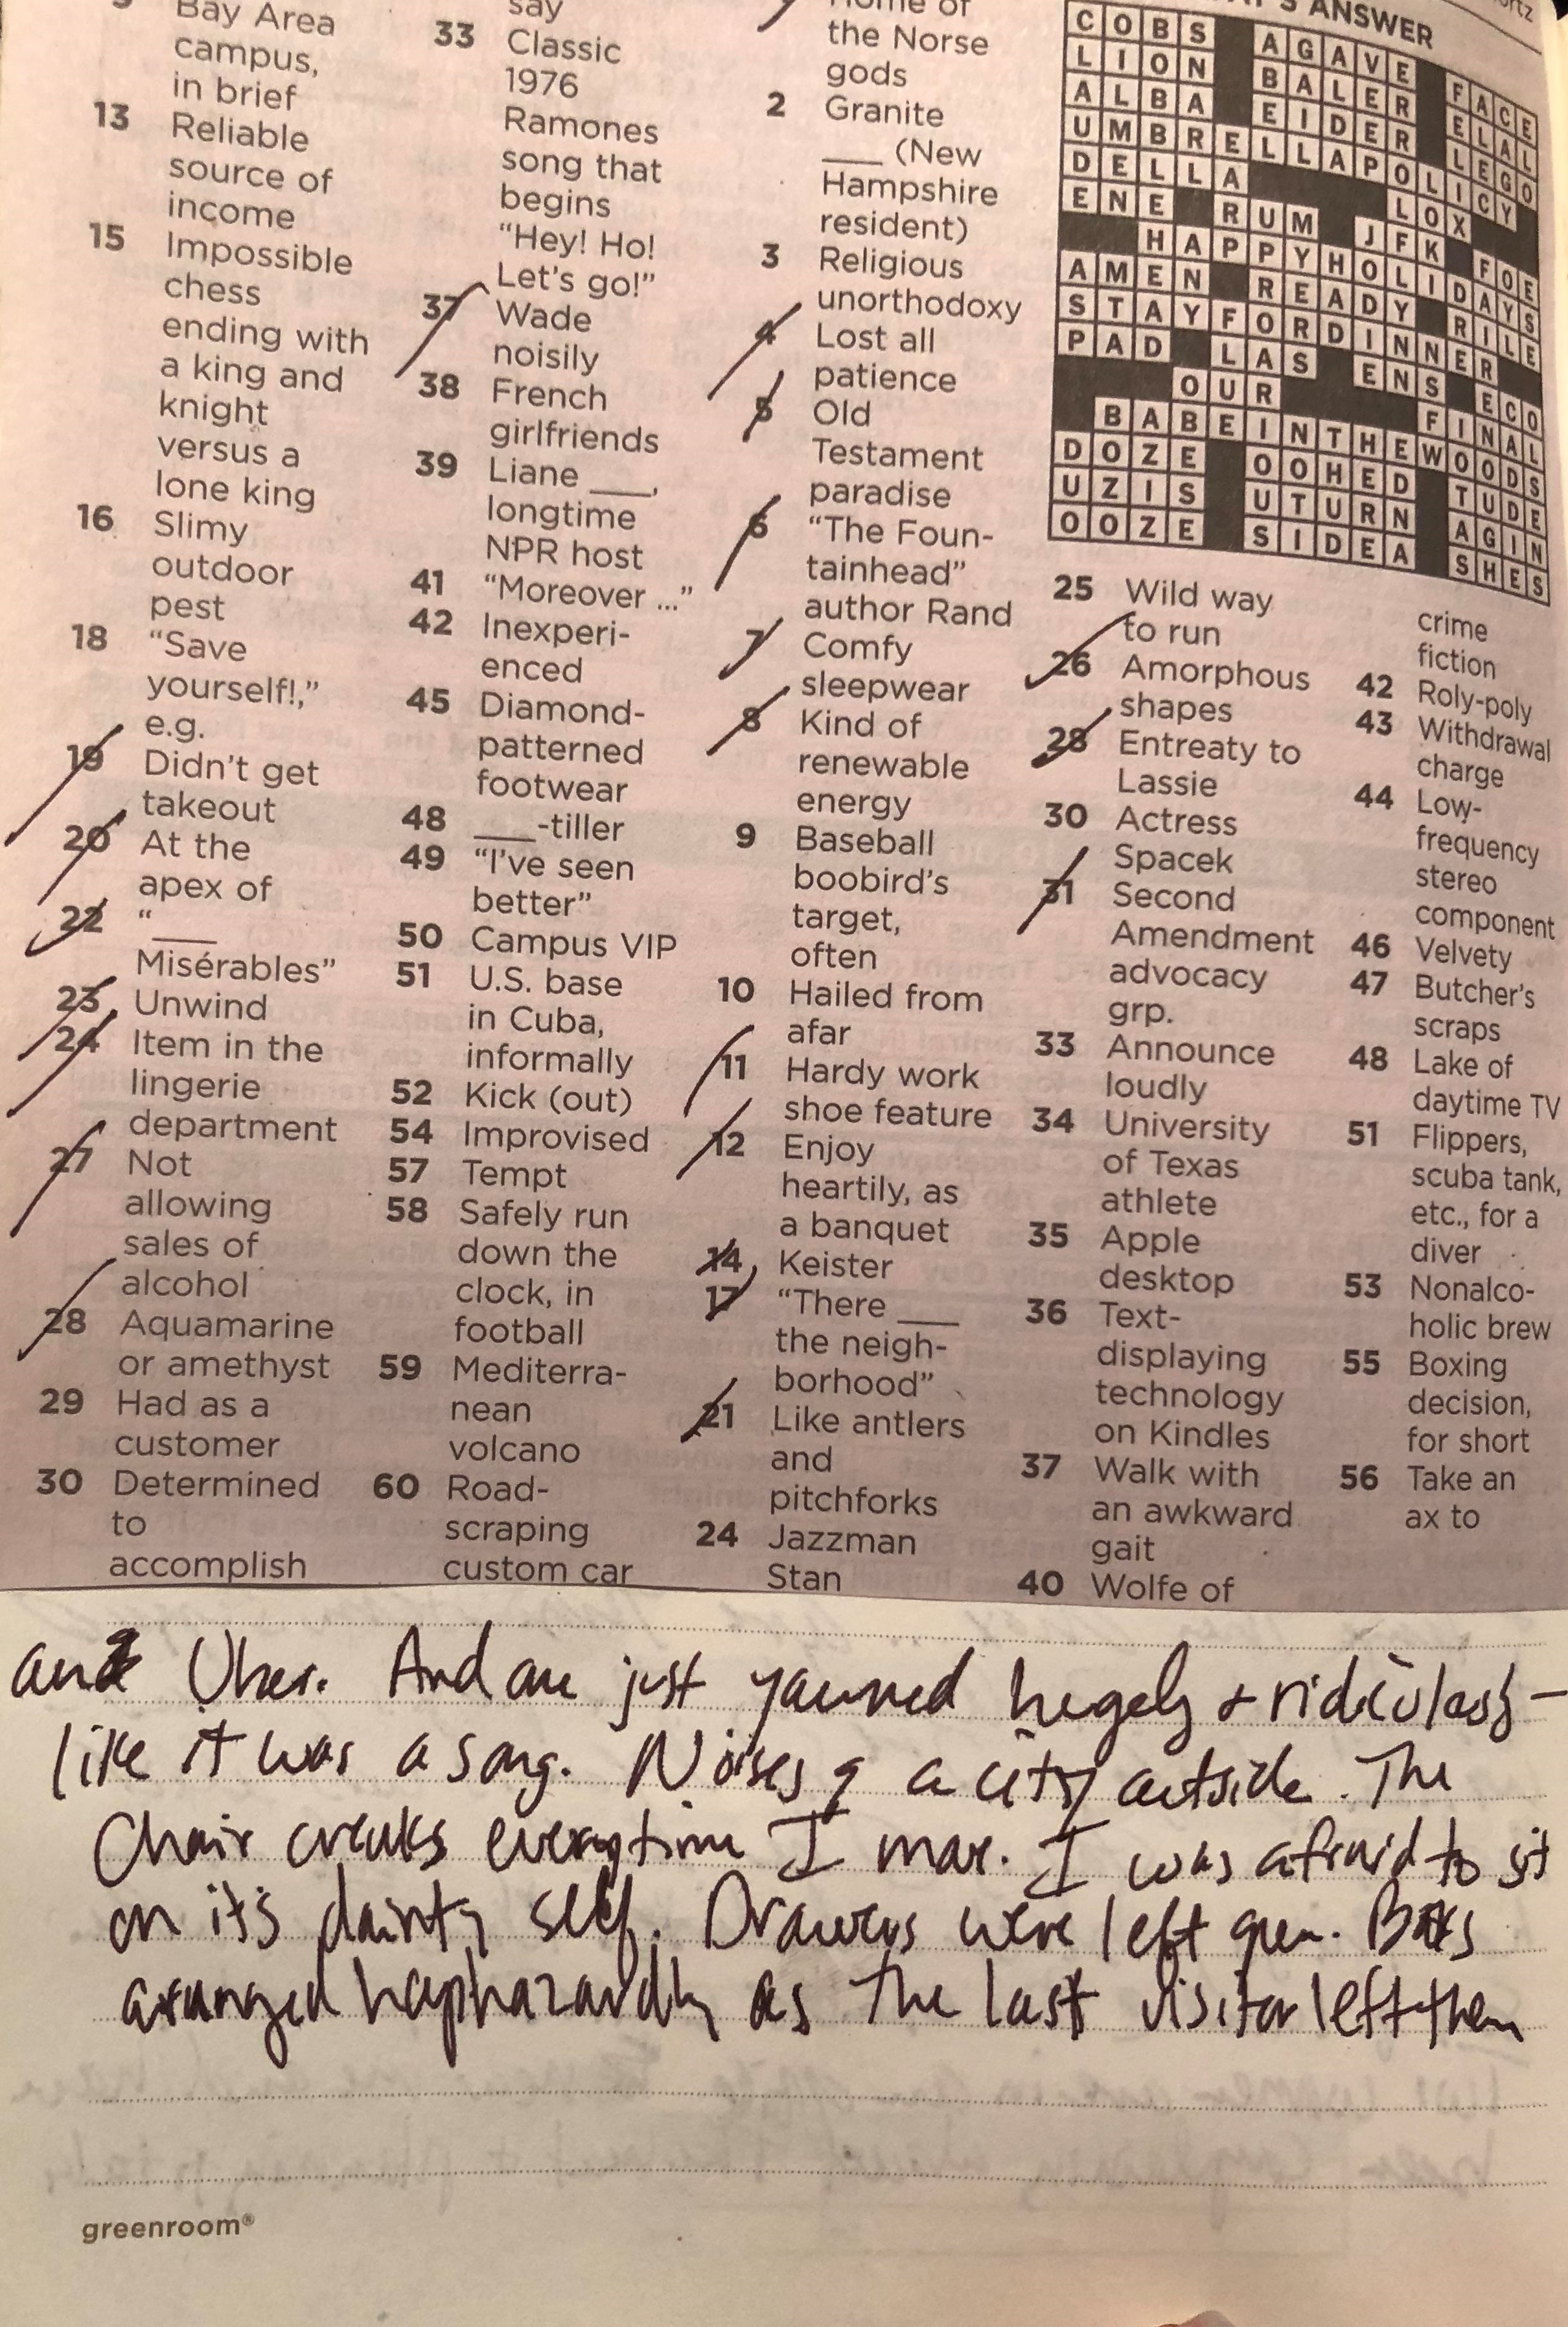 Bay Area
campus,
in brief
13 Reliable
source of
income
15 Impossible
chess
ending with
a king and
knight
versus a
lone king
16 Slimy
outdoor
pest
18 “Save
yourself!,”
e.g.
19 Didn’t get
takeout
20 At the
apex of
22 “ ___
Misérables”
23 Unwind
24 Item in the
lingerie
department
27 Not
allowing
sales of
alcohol
28 Aquamarine
or amethyst
29 Had as a
customer
30 Determined
to
accomplish
say
33 Classic
1976
Ramones
song that
begins
“Hey! Ho!
Let’s go!”
37 Wade
noisily
38 French
girlfriends
39 Liane ___,
longtime
NPR host
41 “Moreover ...”
42 Inexperi-
enced
45 Diamond-
patterned
footwear
48 ___-tiller
49 “I’ve seen
better”
50 Campus VIP
51 U.S. base
in Cuba,
informally
52 Kick (out)
54 Improvised
57 Tempt
58 Safely run
down the
clock, in
football
59 Mediterra-
nean
volcano
60 Road-
scraping
custom car
Home of
the Norse
gods
2 Granite
___ (New
Hampshire
resident)
3 Religious
unorthodoxy
4 Lost all
patience
5 Old
Testament
paradise
6 “The Foun-
tainhead”
author Rand
7 Comfy
sleepwear
8 Kind of
renewable
energy
9 Baseball
boobird’s
target,
often
10 Hailed from
afar
11 Hardy work
shoe feature
12 Enjoy
heartily, as
a banquet
14 Keister
17 “There ___
the neigh-
borhood”
21 Like antlers
and
pitchforks
24 Jazzman
Stan
ANSWER
COBS AGAVE FACE
LION BALER ELAL
ALBA EIDER LEGO
UMBRELLAPOLICY
DELLA LOX
ENE RUM JFK FOE
HAPPYHOLIDAYS
AMEN READY RILE
STAYFORDINNER
PAD LAS ENS ECO
OUR FINAL
BABEINTHEWOODS
DOZE OOHED TUDE
UZIS UTURN AGIN
OOZE SIDEA SHES
25 Wild way
to run
26 Amorphous
shapes
28 Entreaty to
Lassie
30 Actress
Spacek
31 Second
Amendment
advocacy
grp.
33 Announce
loudly
34 University
of Texas
athlete
35 Apple
desktop
36 Text-
displaying
technology
on Kindles
37 Walk with
an awkward
gait
40 Wolfe of
crime
fiction
42 Roly-poly
43 Withdrawal
charge
44 Low-
frequency
stereo
component
46 Velvety
47 Butcher’s
scraps
48 Lake of
daytime TV
51 Flippers,
scuba tank,
etc., for a
diver
53 Nonalco-
holic brew
55 Boxing
decision,
for short
56 Take an
ax to
and Uber. And one just yawned hugely + ridiculously –
like it was a song. Noises of a city outside. The
Chair creaks everytime I move. I was afraid to sit
on it's dainty self. Drawers were left open.
arranged haphazardly as the last visitor left them
greenroom®